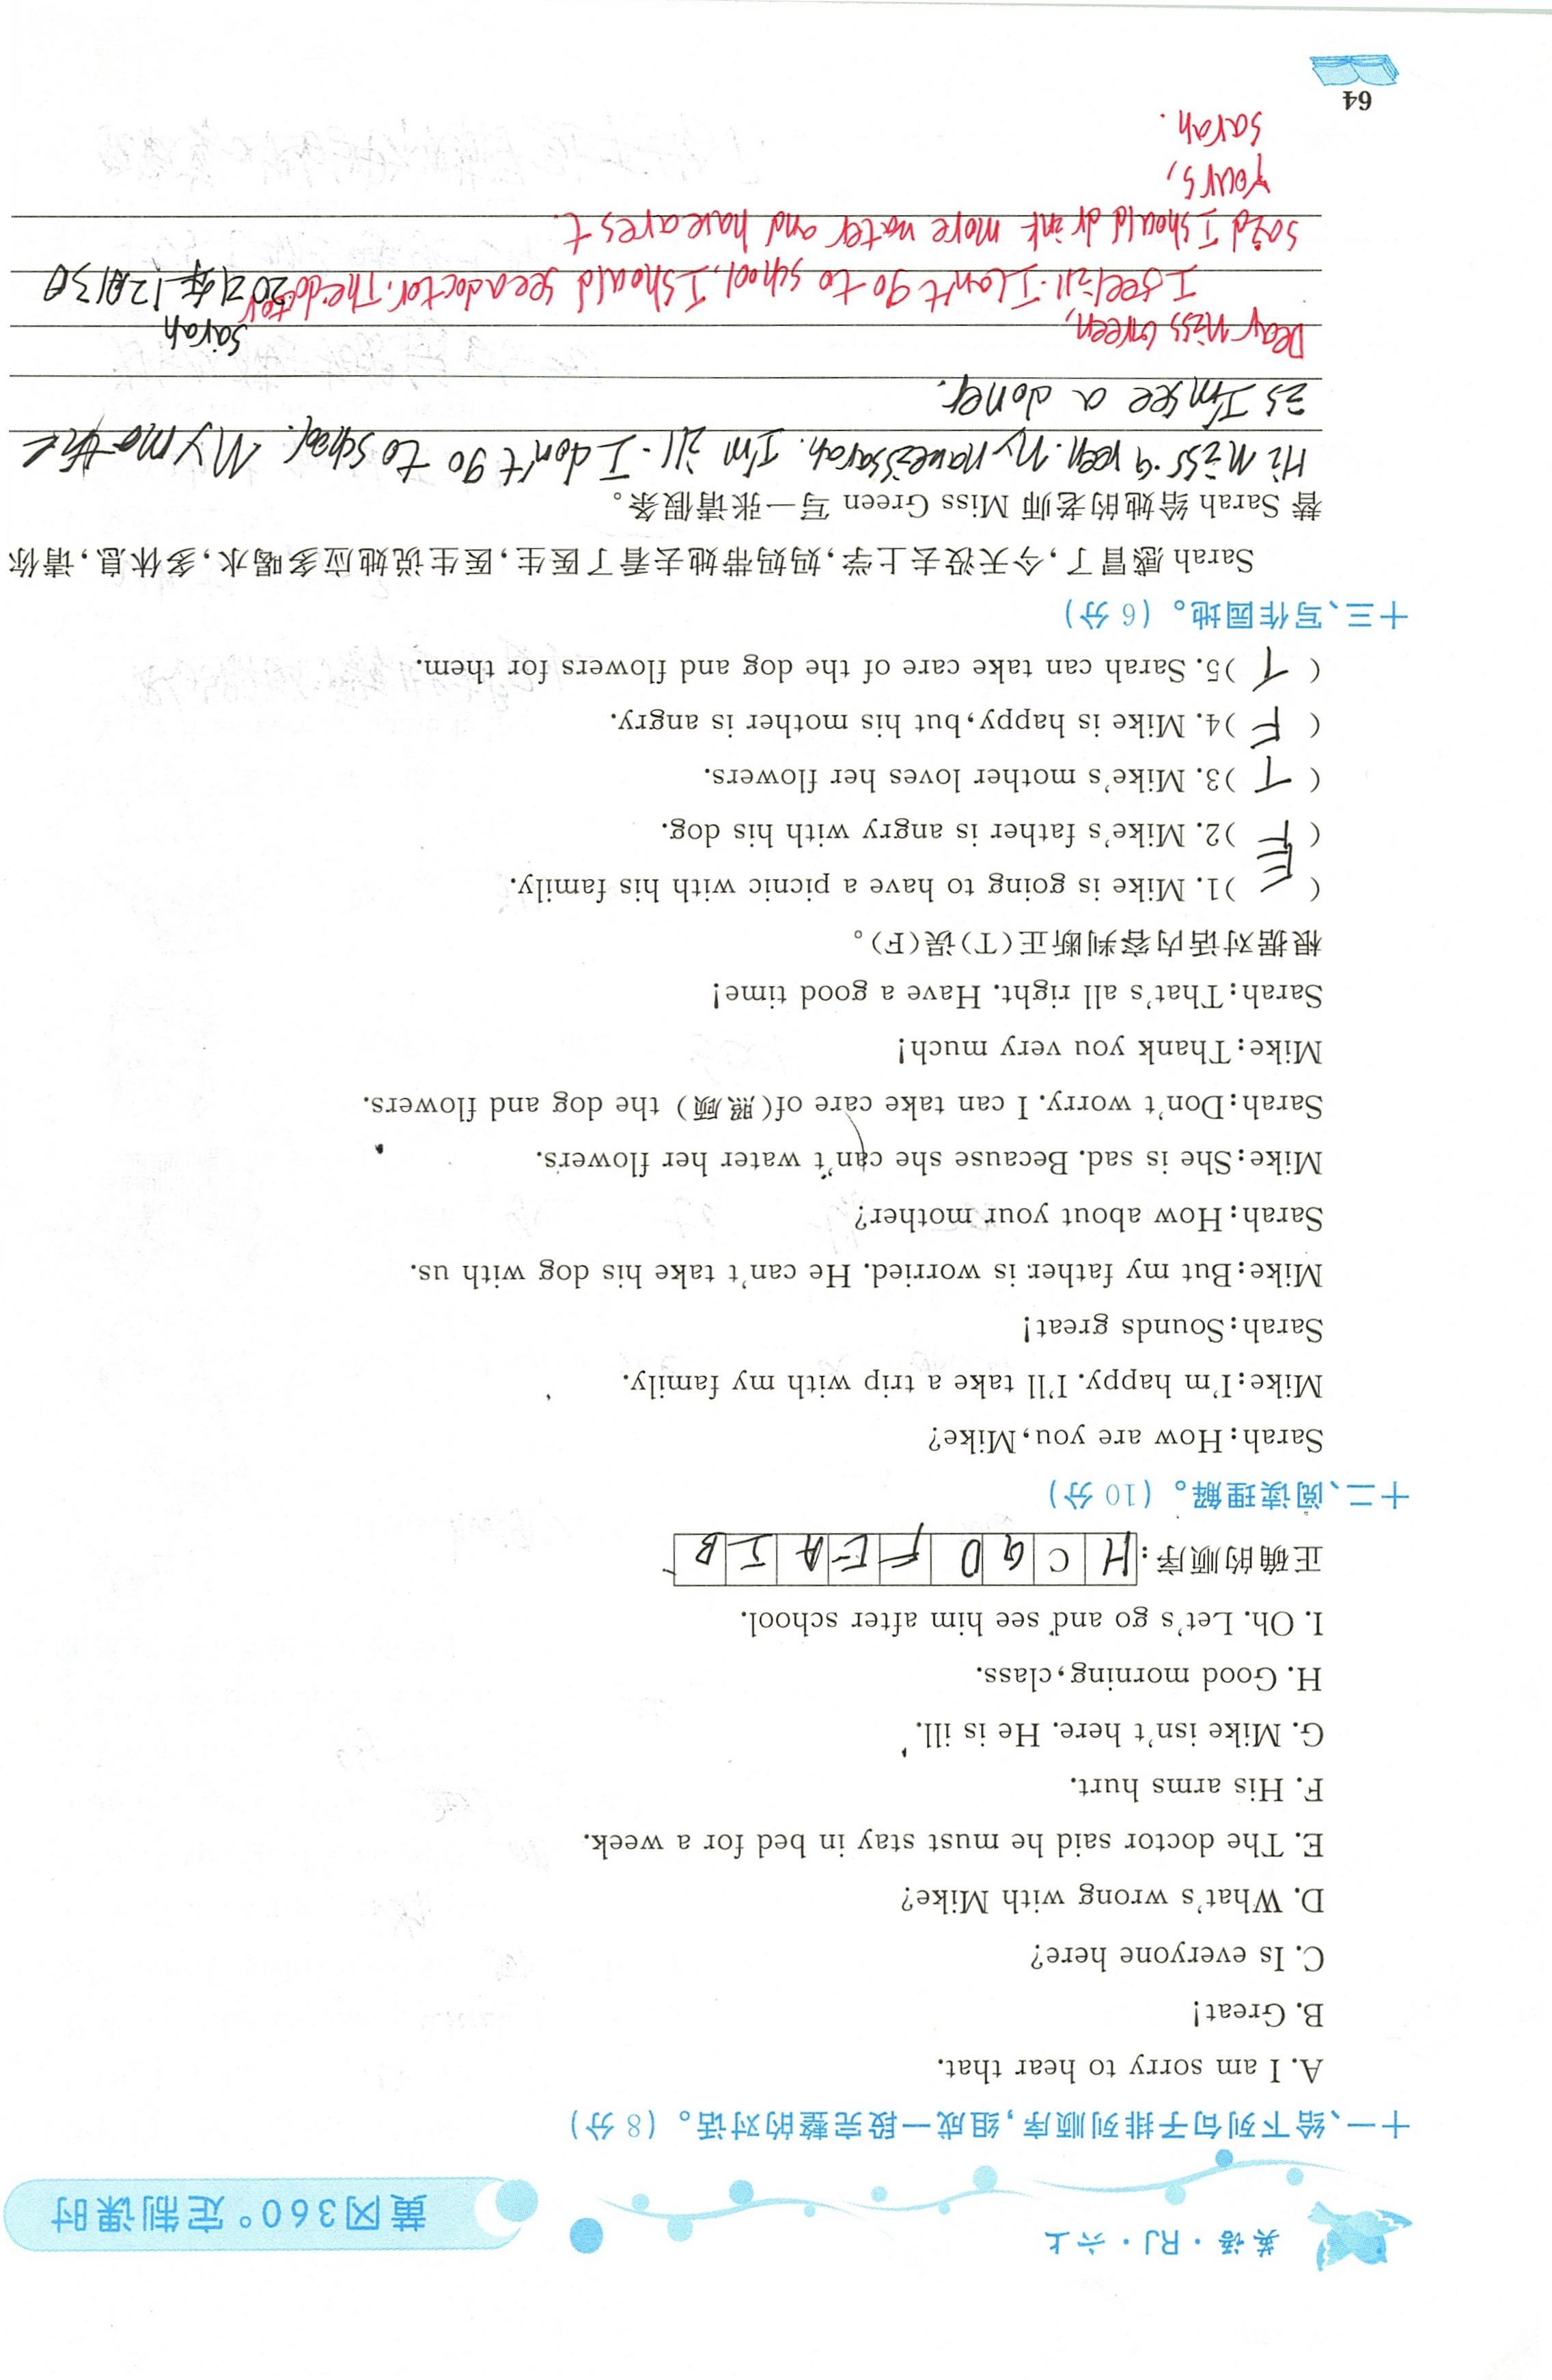 英语·RJ·六上
黄冈360°定制课时
十一、给下列句子排列顺序,组成一段完整的对话。(8 分)
A. I am sorry to hear that.
B. Great!
C. Is everyone here?
D. What's wrong with Mike?
E. The doctor said he must stay in bed for a week.
F. His arms hurt.
G. Mike isn't here. He is ill.
H. Good morning,class.
I. Oh. Let's go and see him after school.
正确的顺序: H C G D F E A I B
十二、阅读理解。(10 分)
Sarah:How are you,Mike?
Mike:I'm happy. I'll take a trip with my family.
Sarah:Sounds great!
Mike:But my father is worried. He can't take his dog with us.
Sarah:How about your mother?
Mike:She is sad. Because she can't water her flowers.
Sarah:Don't worry. I can take care of(照顾) the dog and flowers.
Mike:Thank you very much!
Sarah:That's all right. Have a good time!
根据对话内容判断正(T)误(F)。
( F )1. Mike is going to have a picnic with his family.
( F )2. Mike's father is angry with his dog.
( T )3. Mike's mother loves her flowers.
( F )4. Mike is happy,but his mother is angry.
( T )5. Sarah can take care of the dog and flowers for them.
十三、写作园地。(6 分)
Sarah 感冒了,今天没去上学,妈妈带她去看了医生,医生说她应多喝水,多休息,请你
替 Sarah 给她的老师 Miss Green 写一张请假条。
Hi Miss green. My name is sarah. I'm ill. I don't go to school. My mother
is I'm see a
Dear miss Green, sarah
I feel ill. I can't go to school. I should see a doctor. The doctor 2021年12月13日
said I should drink more water and have a rest.
Yours,
sarah.
64